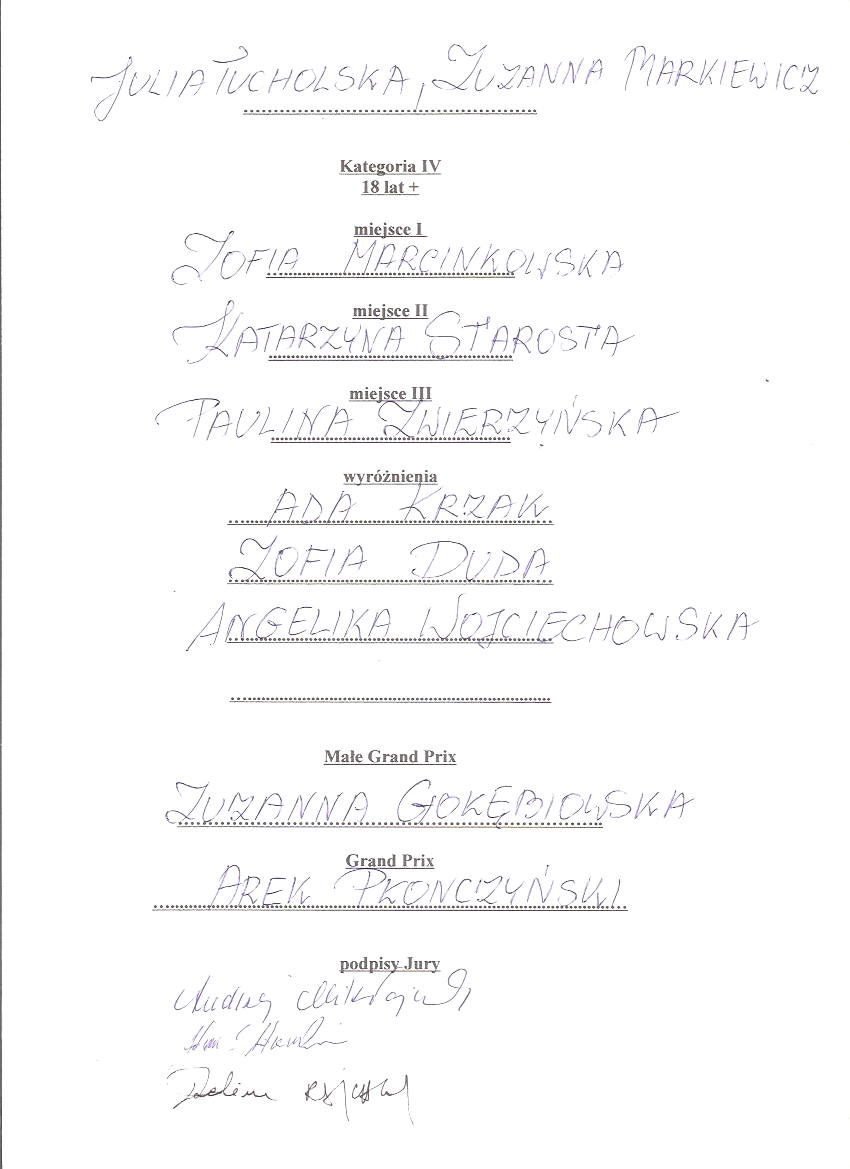 JULIA TUCHOLSKA, ZUZANNA MARKIEWICZ
Kategoria IV
18 lat +
miejsce I
ZOFIA MARCINKOWSKA
miejsce II
KATARZYNA STAROSTA
miejsce III
PAULINA ZWIERZYŃSKA
wyróżnienia
ADA KRZAK
ZOFIA DUDA
ANGELIKA WOJCIECHOWSKA
Małe Grand Prix
ZUZANNA GOŁĘBIOWSKA
Grand Prix
AREK PŁONCZYŃSKI
podpisy Jury
Andrzej